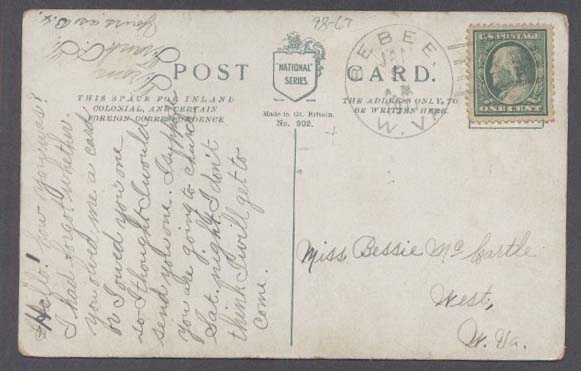 98-67
POST CARD.
"NATIONAL"
SERIES.
THIS SPACE FOR INLAND
COLONIAL, AND CERTAIN
FOREIGN CORRESPONDENCE
THE ADDRESS ONLY, TO
BE WRITTEN HERE.
Made in Gt. Britain.
No. 902.
EBEE
W.V
U.S. POSTAGE
ONE CENT
Hello! How you guess?
I had forgot whether
you owed me a card
or I owed you one
so I thought I would
send you one. Suppose
you are going to church
Sat. night. I don't
think I will get to
come.
From
Frank C. G.
Miss Bessie McCartle
West,
W. Va.